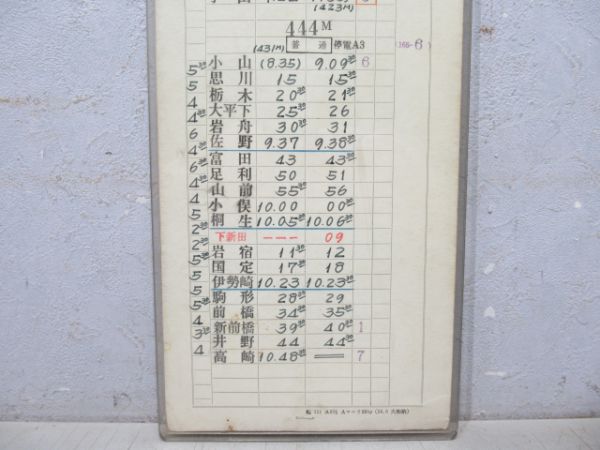 (1423M)
444M
(431M) 普通 停電A3 (165-6)
小山 (8.35) 9.09 6
5 思川 15 15
5 栃木 20 21
4 大平下 25 26
4 岩舟 30 31
6 佐野 9.37 9.38
4 富田 43 43
6 足利 50 51
4 山前 55 56
4 小俣 10.00 00
5 桐生 10.05 10.06
2 下新田 --- 09
2 岩宿 11 12
5 国定 17 18
5 伊勢崎 10.23 10.23
5 駒形 28 29
5 前橋 34 35
4 新前橋 39 40 1
3 井野 44 44
4 高崎 10.48 = 7